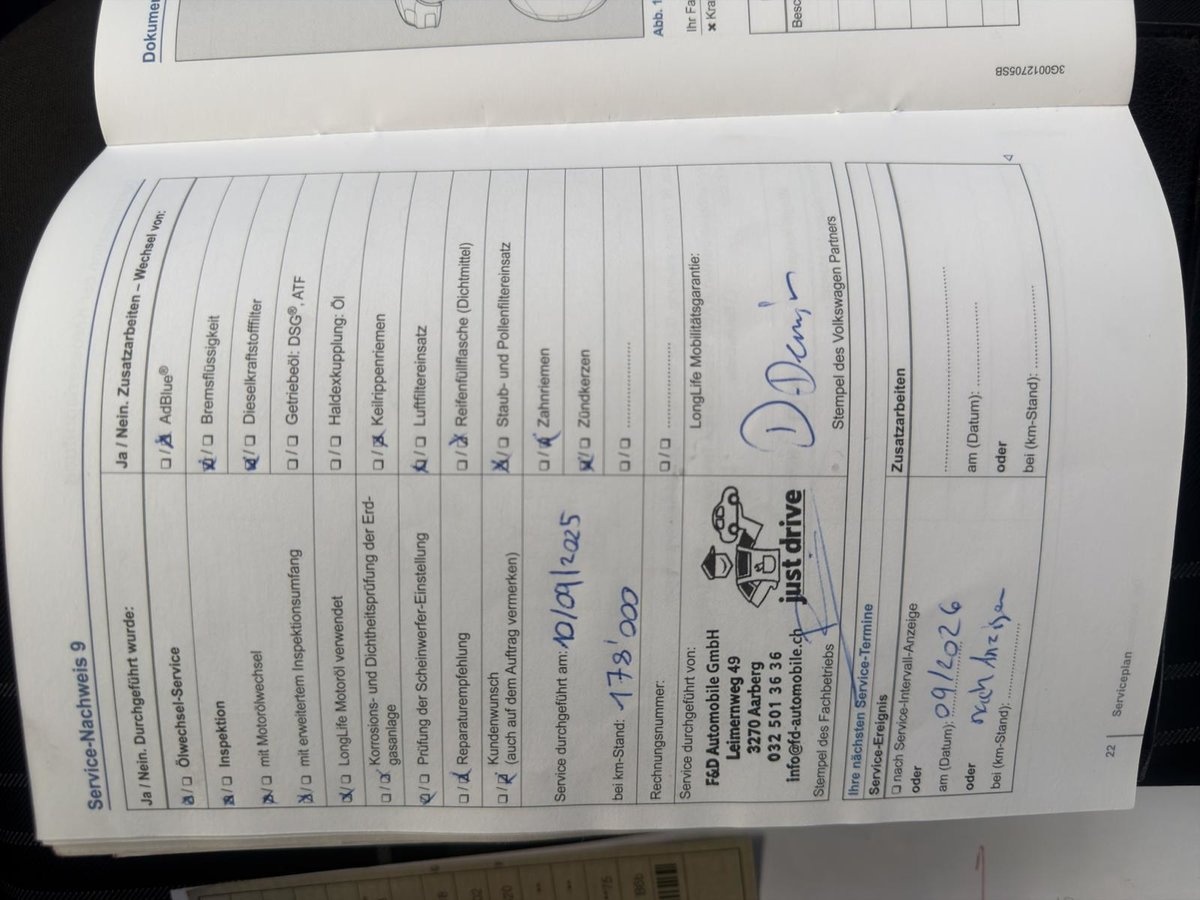 Service-Nachweis 9
Ja / Nein. Durchgeführt wurde:
☒ / ☐ Ölwechsel-Service
☒ / ☐ Inspektion
☒ / ☐ mit Motorölwechsel
☒ / ☐ mit erweitertem Inspektionsumfang
☒ / ☐ LongLife Motoröl verwendet
☐ / ☒ Korrosions- und Dichtheitsprüfung der Erd-
gasanlage
☒ / ☐ Prüfung der Scheinwerfer-Einstellung
☐ / ☒ Reparaturempfehlung
☐ / ☒ Kundenwunsch
(auch auf dem Auftrag vermerken)
Service durchgeführt am: 10/09/2025
bei km-Stand: 178'000
Rechnungsnummer:
Service durchgeführt von:
F&D Automobile GmbH
Leimernweg 49
3270 Aarberg
032 501 36 36
info@fd-automobile.ch
just drive
Stempel des Fachbetriebs
Ja / Nein. Zusatzarbeiten – Wechsel von:
☐ / ☒ AdBlue®
☒ / ☐ Bremsflüssigkeit
☒ / ☐ Dieselkraftstofffilter
☐ / ☐ Getriebeöl: DSG®, ATF
☐ / ☐ Haldexkupplung: Öl
☐ / ☒ Keilrippenriemen
☒ / ☐ Luftfiltereinsatz
☐ / ☒ Reifenfüllflasche (Dichtmittel)
☒ / ☐ Staub- und Pollenfiltereinsatz
☐ / ☒ Zahnriemen
☒ / ☐ Zündkerzen
☐ / ☐ ....................
☐ / ☐ ....................
LongLife Mobilitätsgarantie:
Stempel des Volkswagen Partners
Ihre nächsten Service-Termine
Service-Ereignis
☐ nach Service-Intervall-Anzeige
oder
am (Datum): 09/2026
oder
nach Anzeigen
bei (km-Stand): ....................
Zusatzarbeiten
....................
am (Datum): ....................
oder
bei (km-Stand): ....................
22
Serviceplan
Abb. 1
Ihr Fa
x Kra
Besc
3G0012705SB